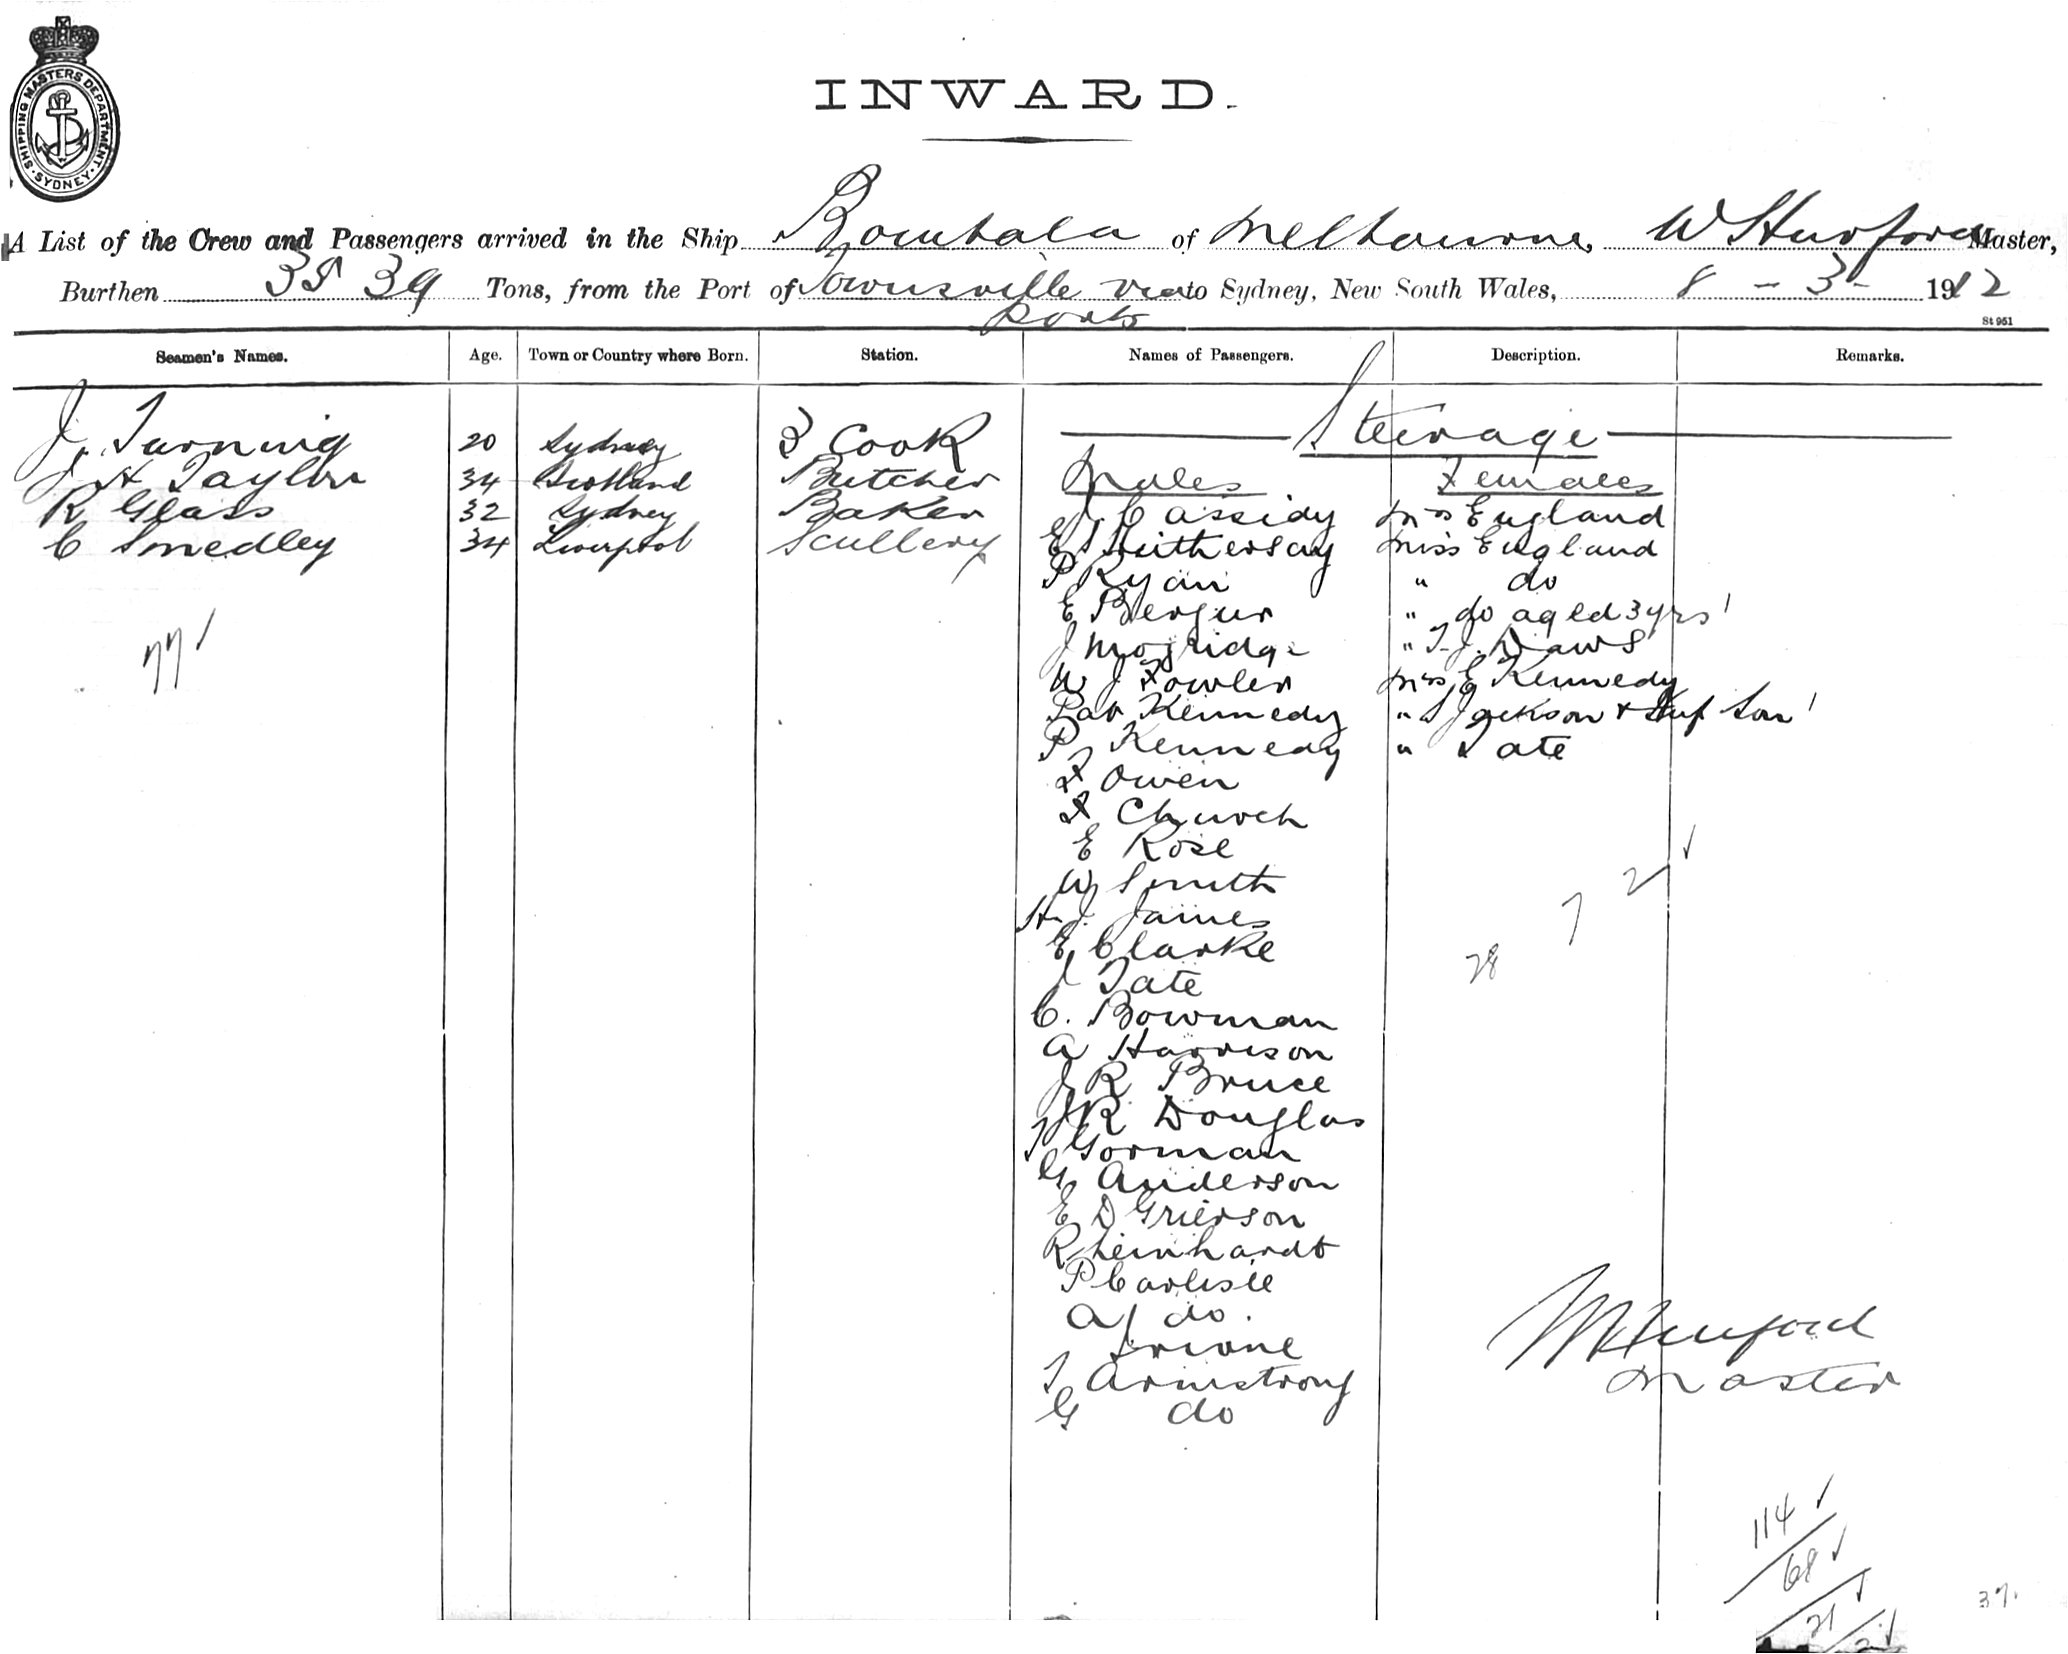 SHIPPING MASTERS DEPARTMENT
SYDNEY
INWARD.
A List of the Crew and Passengers arrived in the Ship Bombala of Melbourne, W Hurford Master,
Burthen 3539 Tons, from the Port of Townsville via to Sydney, New South Wales, 8 - 3 - 1912
Ports
St 951
Seamen's Names. Age. Town or Country where Born. Station. Names of Passengers. Description. Remarks.
Steerage
Males Females
J. Turning 20 Sydney 3 Cook
J H Taylor 34 Scotland Butcher
R Glass 32 Sydney Baker
C Smedley 34 Liverpool Scullery
J Cassidy Mrs England
Suthersay Miss England
P Ryan " do
E Bergur " do aged 3 yrs 1
J Mogridge " T. J. Daws
W J Fowler Mrs E Kennedy
Pat Kennedy " S Jackson & Inf Son 1
P Kennedy " Tate
F Owen
F Church
E Rose
W Smith
H. J. James
E Clarke
J Tate
C. Bowman
A Harrison
J R Bruce
J R Douglas
T Gorman
G Anderson
E D Grierson
R Leinhardt
P Carlisle
A J do.
Irvine
T Armstrong
G do
77 ✓
28 7 2 ✓
W Hurford
Master
114 ✓
68 ✓
21 ✓
2 ✓
37.